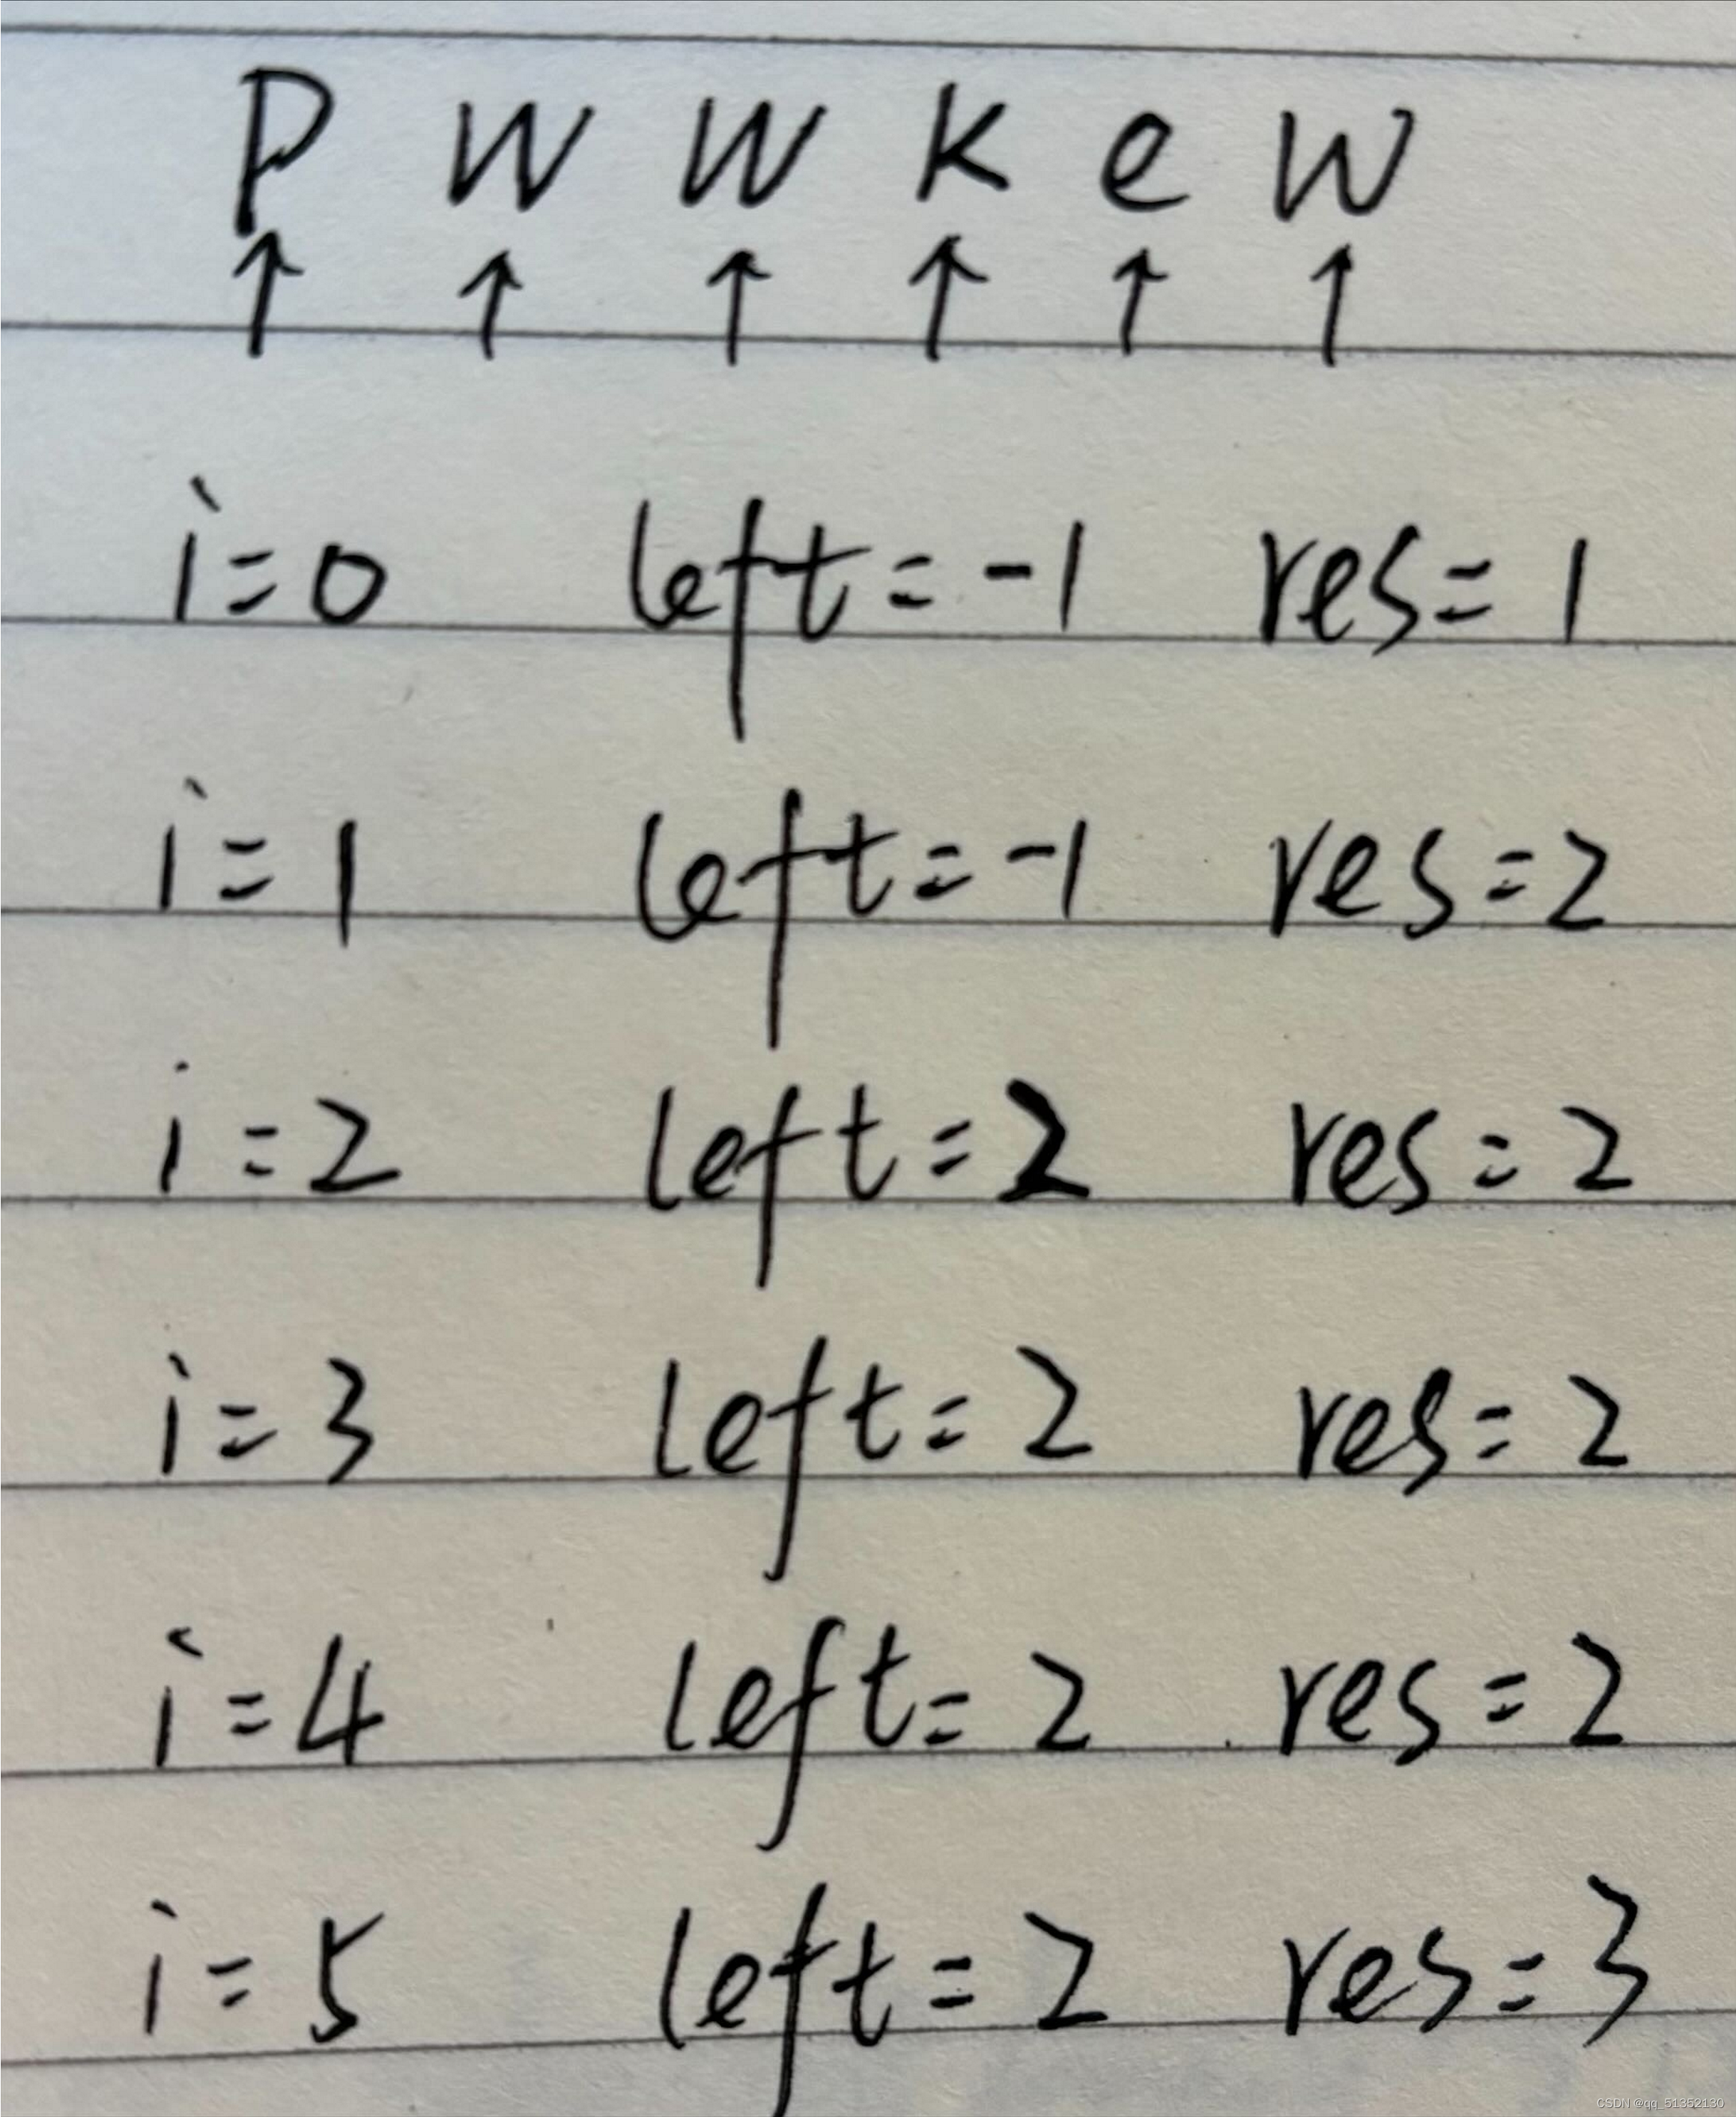 p w w k e w
↑ ↑ ↑ ↑ ↑ ↑
i=0 left=-1 res=1
i=1 left=-1 res=2
i=2 left=2 res=2
i=3 left=2 res=2
i=4 left=2 res=2
i=5 left=2 res=3
CSDN @qq_51352130